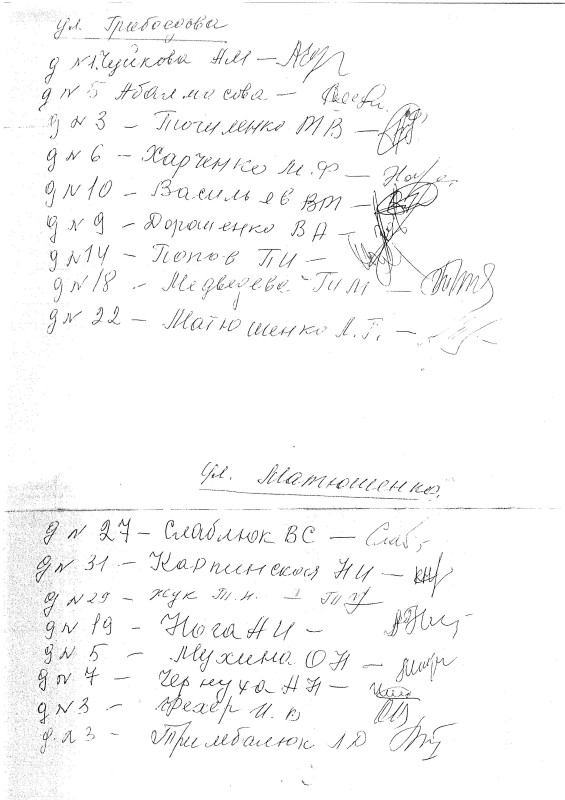 ул. Грибоедова
д №1. Чуйкова НМ —
д № 5 Абалмасова —
д № 3 — Точиленко МВ —
д № 6 — Харченко М.Ф —
д № 10 — Васильев ВТ —
д № 9 — Дорошенко ВА —
д № 14 — Попов ПИ —
д № 18 — Медведева ТИМ —
д № 22 — Матюшенко Л.Г. —
ул. Матюшенко.
д № 27 — Слаблюк ВС — Слаб
д № 31 — Карпинская НИ —
д № 29 — Жук Т.И. —
д № 19 — Нога НИ —
д № 5 — Мухина ОН —
д № 7 — Чернуха НН —
д № 3 — Фехер И.В
д. № 3 — Тримбалюк ЛД